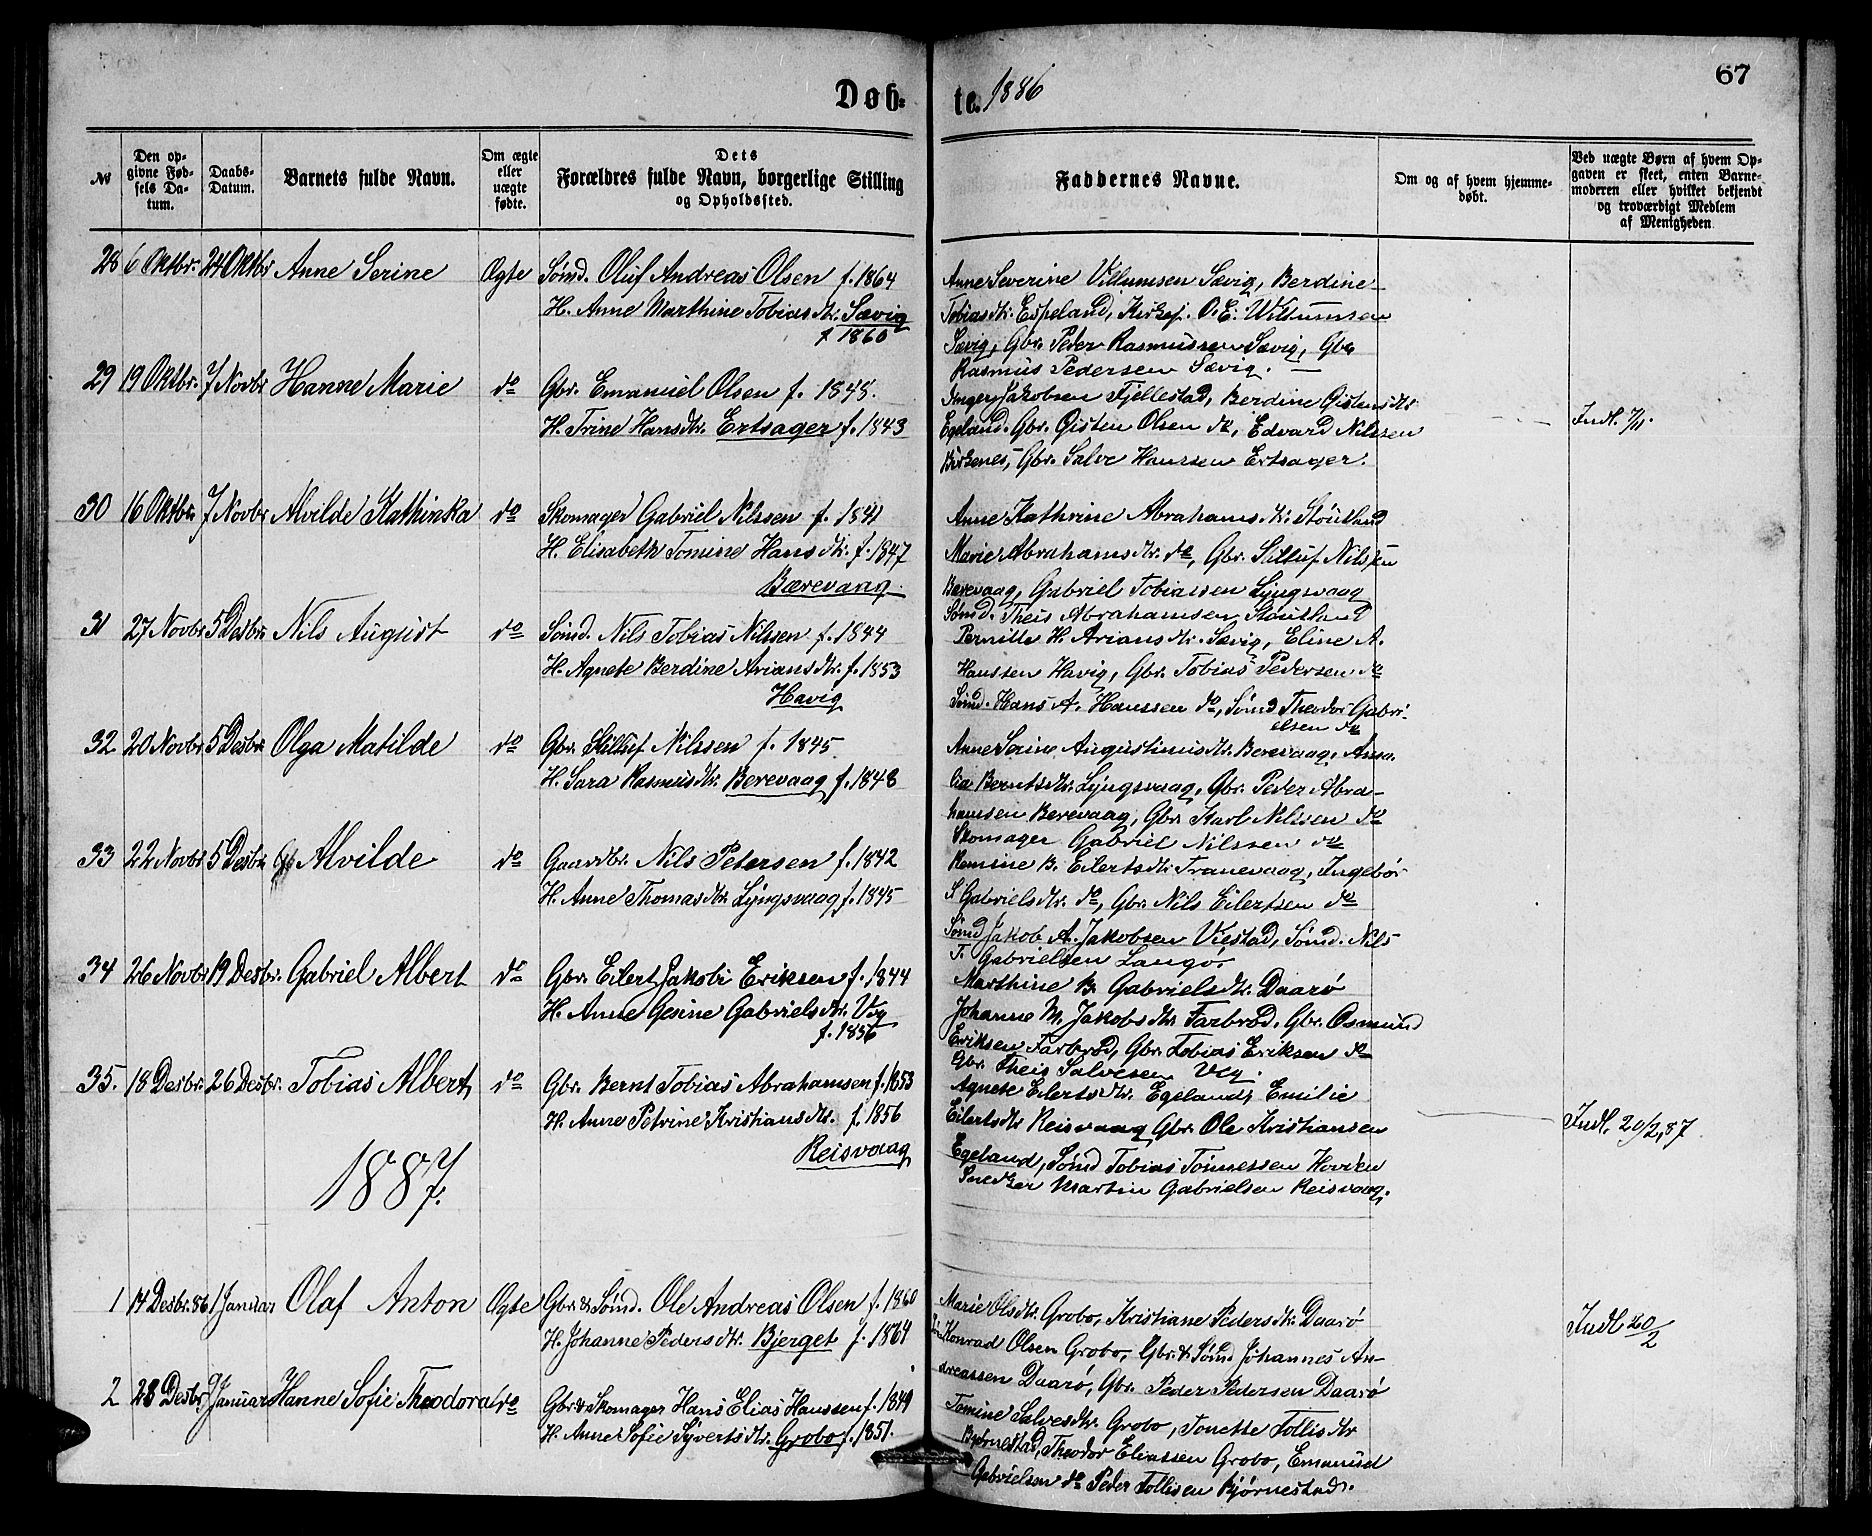 Døb-
te. 1886
67
№
Den op-
givne Fød-
sels Da-
tum.
Daabs-
Datum.
Barnets fulde Navn.
Om ægte
eller
uægte
fødte.
Dets
Forældres fulde Navn, borgerlige Stilling
og Opholdssted.
Faddernes Navne.
Om og af hvem hjemme-
døbt.
Ved uægte Børn af hvem Op-
gaven er skeet, enten Barne-
moderen eller hvilket bekjendt
og troværdigt Medlem
af Menigheden
28 6 Oktbr. 24 Oktbr Anne Serine Ægte Sømd. Oluf Andreas Olsen f. 1864
H. Anne Marthine Tobiasdtr. Sævig
f 1860
Anne Severine Villumsen Sævig, Berdine
Tobiasdtr. Espeland, Kirkesj. O. E. Willumsen
Sævig, Gbr. Peder Rasmussen Sævig, Gbr
Rasmus Pedersen Sævig.
29 19 Oktbr. 7 Novbr Hanne Marie do Gbr. Emanuel Olsen f. 1845.
H. Trine Hansdtr. Ertsager f. 1843
Inger Jakobsen Fjellestad, Berdine Gistensdtr
Egeland. Gbr. Gisten Olsen do, Edvard Nilssen
Birkenes, Gbr. Salve Hanssen Ertsager.
Indl. 7/11.
30 16 Oktbr 7 Novbr Alvilde Kathinka do Skomager Gabriel Nilssen f. 1841
H. Elisabeth Tomine Hansdtr. f. 1847
Bærevaag.
Anne Kathrine Abrahamsdtr. Stoutland
Marie Abrahamsdtr. do, Gbr. Sittuf Nilssen
Berevaag, Gabriel Tobiassen Lyngsvaag
Sømd. Theis Abrahamsen Stoutland
31 27 Novbr 5 Desbr Nils August do Sømd. Nils Tobias Nilssen f. 1844
H. Agnete Berdine Ariansdtr. f. 1853
Havig
Pernille H. Ariansdtr. Sævig, Eline A.
Hanssen Havig, Gbr. Tobias Pedersen do
Sømd. Hans A. Hanssen do, Sømd Theodor Gabri-
elsen do
32 20 Novbr 5 Desbr Olga Matilde do Gbr. Sittuf Nilssen f. 1845
H. Sara Rasmusdtr. Berevaag f. 1848
Anne Serine Augustinusdtr. Berevaag, Ama-
lia Berntsdtr. Lyngsvaag, Gbr. Peder Abra-
hamsen Berevaag, Gbr. Karl Nilssen do
Skomager Gabriel Nilssen do
33 22 Novbr 5 Desbr Alvilde do Gaardbr. Nils Petersen f. 1842
H. Anne Thomasdtr. Lyngsvaag f. 1845
Ramine B. Eilertsdtr. Tranevaag, Ingebor
S Gabrielsdtr. do, Gbr. Nils Eilertsen do
Sømd Jakob A. Jakobsen Viestad, Sømd. Nils
T. Gabrielsen Langø.
34 26 Novbr 19 Desbr. Gabriel Albert do Gbr. Eilert Jakobi Eriksen f. 1844
H. Anne Gesine Gabrielsdtr. Veg
f. 1856
Marthine B. Gabrielsdtr. Daarø
Johanne M. Jakobsdtr Farbrød, Gbr. Osmund
Eriksen Farbrød, Gbr. Tobias Eriksen do
Gbr. Theis Salvesen Veg.
35. 18 Desbr. 26 Desbr. Tobias Albert do Gbr. Bernt Tobias Abrahamsen f. 1853
H. Anne Petrine Kristiansdtr. f. 1856
Reisvaag
Agnete Eilertsdtr. Egeland, Emilie
Eilertsdtr Reisvaag Gbr. Ole Kristiansen
Egeland, Sømd Tobias Tønnessen Hoviken
Snedker Martin Gabrielsen Reisvaag.
Indl. 20/2, 87
1887.
1 14 Desbr. 86 1 Januar Olaf Anton Ægte Gbr. & Sømd. Ole Andreas Olsen f. 1860
H. Johanne Pedersdtr. Bjerget f. 1864
Marie Olsdtr. Grobo, Kristiane Pedersdtr. Daarø
Konrad Olsen Grobo, Gbr. & Sømd Johannes An-
dreassen Daarø, Gbr. Peder Pedersen Daarø
Indl 20/2
2 28 Desbr 9 Januar Hanne Sofie Theodora do Gbr & Skomager Hans Elias Hanssen f. 1849
H. Anne Sofie Syvertsdtr. Grobo f. 1851.
Tomine Salvesdtr. Grobo, Tonette Tollisdtr
Bjørnestad, Theodor Eliassen Grobo, Emanuel
Gabrielsen do Peder Tollisen Bjørnestad.